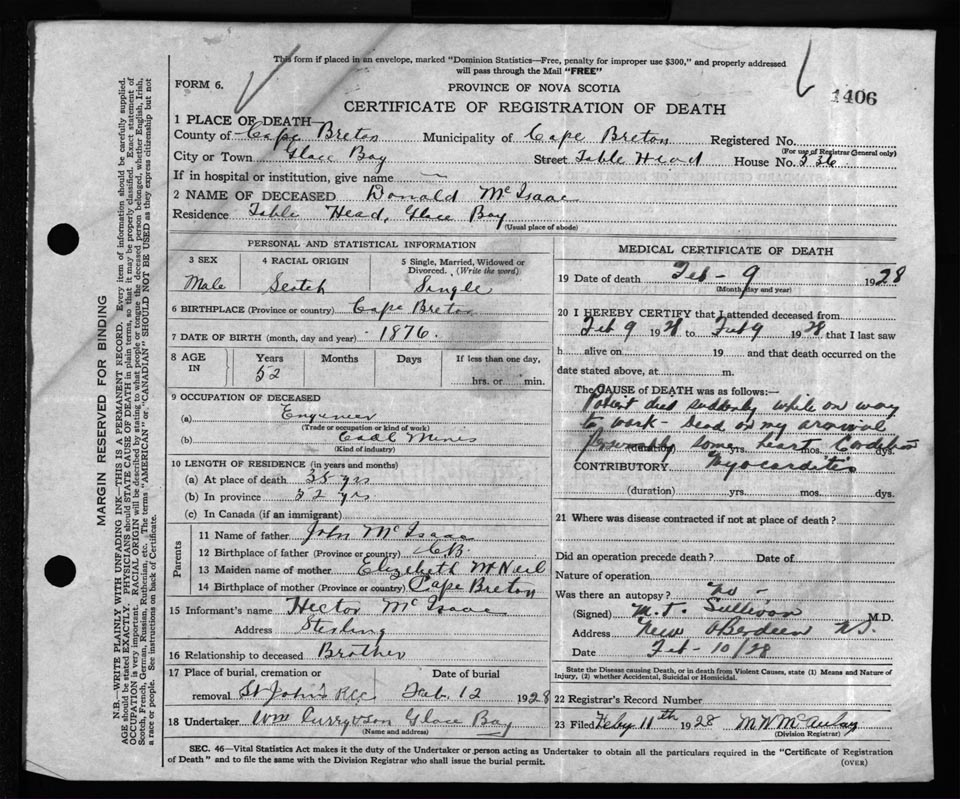 This form if placed in an envelope, marked "Dominion Statistics—Free, penalty for improper use $300," and properly addressed
will pass through the Mail "FREE"
FORM 6.
PROVINCE OF NOVA SCOTIA
CERTIFICATE OF REGISTRATION OF DEATH
1406
1 PLACE OF DEATH—
County of Cape Breton Municipality of Cape Breton Registered No.
(For use of Registrar General only)
City or Town Glace Bay Street Table Head House No. 536
If in hospital or institution, give name —
2 NAME OF DECEASED Donald McIsaac
Residence Table Head, Glace Bay
(Usual place of abode)
PERSONAL AND STATISTICAL INFORMATION
3 SEX 4 RACIAL ORIGIN 5 Single, Married, Widowed or Divorced. (Write the word)
Male Scotch Single
6 BIRTHPLACE (Province or country) Cape Breton
7 DATE OF BIRTH (month, day and year) 1876.
8 AGE IN Years Months Days If less than one day,
52 hrs. or min.
9 OCCUPATION OF DECEASED
(a) Engineer
(Trade or occupation or kind of work)
(b) Coal Mines
(Kind of industry)
10 LENGTH OF RESIDENCE (in years and months)
(a) At place of death 35 yrs
(b) In province 52 yrs
(c) In Canada (if an immigrant)
Parents
11 Name of father John McIsaac
12 Birthplace of father (Province or country) C.B.
13 Maiden name of mother Elizabeth McNeil
14 Birthplace of mother (Province or country) Cape Breton
15 Informant's name Hector McIsaac
Address Sterling
16 Relationship to deceased Brother
17 Place of burial, cremation or Date of burial
removal St John's R.C.C Feb. 12 1928
18 Undertaker Wm Curry & son Glace Bay
(Name and address)
MEDICAL CERTIFICATE OF DEATH
19 Date of death Feb - 9 1928
(Month, day and year)
20 I HEREBY CERTIFY that I attended deceased from
Feb 9 1928 to Feb 9 1928 that I last saw
h alive on 19 and that death occurred on the
date stated above, at m.
The CAUSE of DEATH was as follows:—
Patient died suddenly while on way
to work - dead on my arrival
Presumably some heart Condition
(duration) yrs. mos. dys.
CONTRIBUTORY Myocarditis
(duration) yrs. mos. dys.
21 Where was disease contracted if not at place of death?
Did an operation precede death? Date of
Nature of operation
Was there an autopsy? no -
(Signed) M. T. Sullivan M.D.
Address New Aberdeen N.S.
Date Feb - 10/28
State the Disease causing Death, or in death from Violent Causes, state (1) Means and Nature
of Injury, (2) whether Accidental, Suicidal or Homicidal.
22 Registrar's Record Number
23 Filed Feby 11th 1928 M W McAulay
(Division Registrar)
SEC. 46—Vital Statistics Act makes it the duty of the Undertaker or person acting as Undertaker to obtain all the particulars required in the "Certificate of Registration
of Death" and to file the same with the Division Registrar who shall issue the burial permit.
(OVER)
MARGIN RESERVED FOR BINDING
N.B.—WRITE PLAINLY WITH UNFADING INK—THIS IS A PERMANENT RECORD. Every item of information should be carefully supplied.
AGE should be stated EXACTLY. PHYSICIANS should STATE CAUSE OF DEATH in plain terms, so that it may be properly classified. Exact statement of
OCCUPATION is very important. RACIAL ORIGIN will be described by stating to what people or tongue the deceased person belonged, whether English, Irish,
Scotch, French, German, Russian, Ruthenian etc. The terms "AMERICAN" or "CANADIAN" SHOULD NOT BE USED as they express citizenship but not
a race or people. See instructions on back of Certificate.